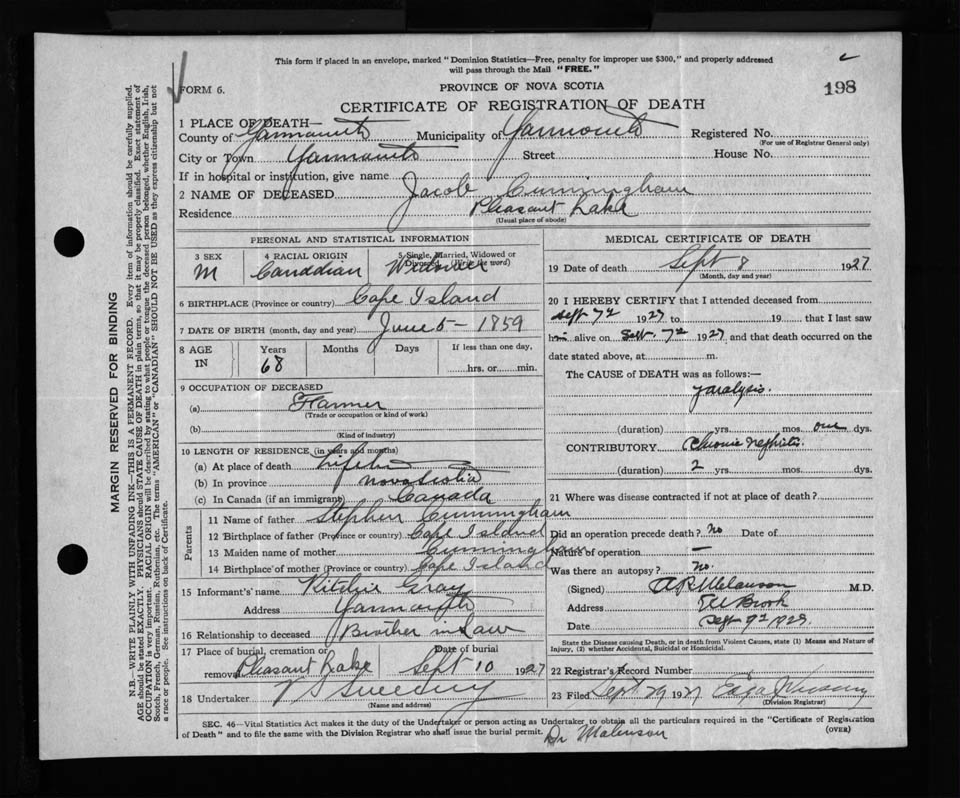 This form if placed in an envelope, marked "Dominion Statistics—Free, penalty for improper use $300," and properly addressed
will pass through the Mail "FREE."
FORM 6.
PROVINCE OF NOVA SCOTIA
198
CERTIFICATE OF REGISTRATION OF DEATH
1 PLACE OF DEATH—
County of Yarmouth Municipality of Yarmouth Registered No.
(For use of Registrar General only)
City or Town Yarmouth Street House No.
If in hospital or institution, give name
2 NAME OF DECEASED Jacob Cunningham
Residence Pleasant Lake
(Usual place of abode)
PERSONAL AND STATISTICAL INFORMATION
3 SEX 4 RACIAL ORIGIN 5 Single, Married, Widowed or
Divorced (Write the word)
M Canadian Widower
6 BIRTHPLACE (Province or country) Cape Island
7 DATE OF BIRTH (month, day and year) June 5 - 1859
8 AGE IN Years Months Days If less than one day,
68 hrs. or min.
9 OCCUPATION OF DECEASED
(a) Farmer
(Trade or occupation or kind of work)
(b)
(Kind of industry)
10 LENGTH OF RESIDENCE (in years and months)
(a) At place of death
(b) In province Nova Scotia
(c) In Canada (if an immigrant) Canada
Parents
11 Name of father Stephen Cunningham
12 Birthplace of father (Province or country) Cape Island
13 Maiden name of mother Cunningham
14 Birthplace of mother (Province or country) Cape Island
15 Informant's name Gray
Address Yarmouth
16 Relationship to deceased Brother in Law
17 Place of burial, cremation or Date of burial
removal Pleasant Lake Sept 10 1927
18 Undertaker V S Sweeny
(Name and address)
MEDICAL CERTIFICATE OF DEATH
19 Date of death Sept 8 1927
(Month, day and year)
20 I HEREBY CERTIFY that I attended deceased from
Sept 7 1927 to 19 that I last saw
him alive on Sept 7 1927 and that death occurred on the
date stated above, at m.
The CAUSE of DEATH was as follows:—
Paralysis.
(duration) yrs. mos. one dys.
CONTRIBUTORY Chronic Nephritis
(duration) 2 yrs. mos. dys.
21 Where was disease contracted if not at place of death?
Did an operation precede death? No Date of
Nature of operation —
Was there an autopsy? No.
(Signed) M.D.
Address
Date Sept
State the Disease causing Death, or in death from Violent Causes, state (1) Means and Nature of
Injury, (2) whether Accidental, Suicidal or Homicidal.
22 Registrar's Record Number
23 Filed Sept 29 1927
(Division Registrar)
SEC. 46—Vital Statistics Act makes it the duty of the Undertaker or person acting as Undertaker to obtain all the particulars required in the "Certificate of Registration
of Death" and to file the same with the Division Registrar who shall issue the burial permit.
(OVER)
Dr
MARGIN RESERVED FOR BINDING
N.B. WRITE PLAINLY WITH UNFADING INK—THIS IS A PERMANENT RECORD. Every item of information should be carefully supplied.
AGE should be stated EXACTLY. PHYSICIANS should STATE CAUSE OF DEATH in plain terms, so that it may be properly classified. Exact statement of
OCCUPATION is very important. RACIAL ORIGIN will be described by stating to what people or tongue the deceased person belonged, whether English, Irish,
Scotch, French, German, Russian, Ruthenian, etc. The terms "AMERICAN" or "CANADIAN" SHOULD NOT BE USED as they express citizenship but not
a race or people. See instructions on back of Certificate.